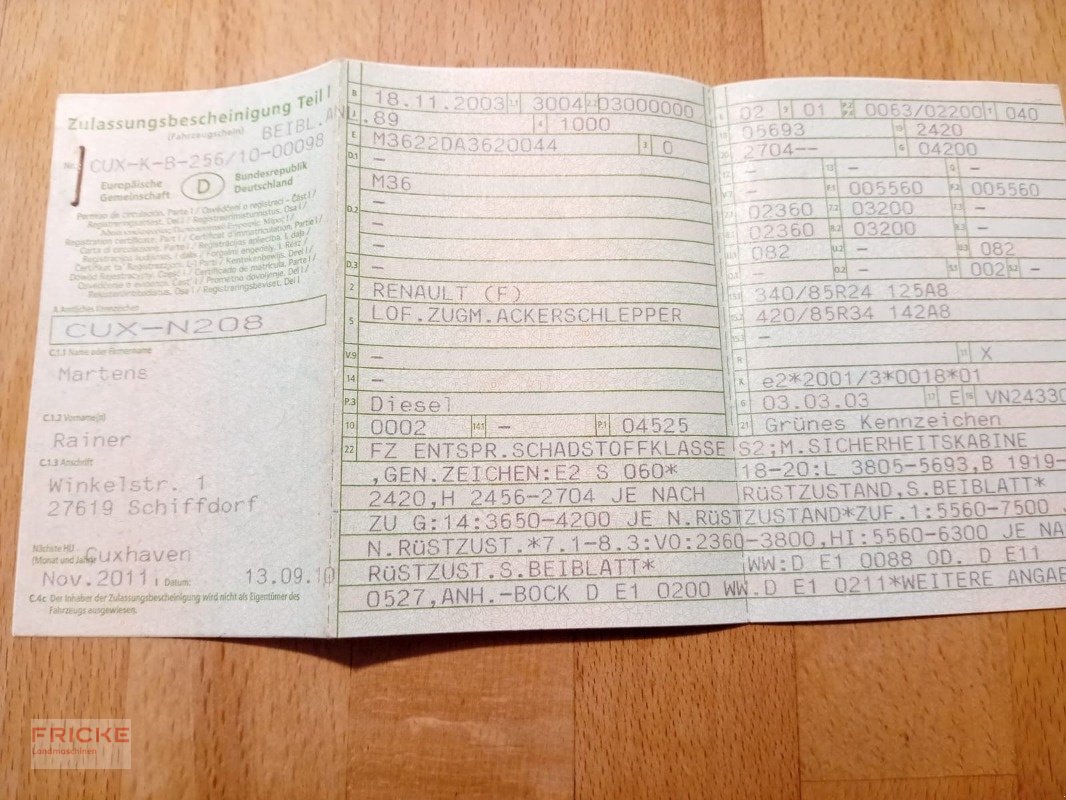 Zulassungsbescheinigung Teil I
(Fahrzeugschein) BEIBL.AN
Nr. CUX-K-B-256/10-00098
Europäische Gemeinschaft
D
Bundesrepublik Deutschland
Permiso de circulación. Parte I / Osvědčení o registraci – Část I /
Registration certificate. Part I / Certificat d'immatriculation. Partie I /
Carta di circolazione. Parte I
A Amtliches Kennzeichen
CUX-N208
C.1.1 Name oder Firmenname
Martens
C.1.2 Vorname(n)
Rainer
C.1.3 Anschrift
Winkelstr. 1
27619 Schiffdorf
Nächste HU
(Monat und Jahr) Cuxhaven
Nov.2011, Datum: 13.09.10
C.4c Der Inhaber der Zulassungsbescheinigung wird nicht als Eigentümer des
Fahrzeugs ausgewiesen.
B 18.11.2003 2.1 3004 2.2 03000000
J .89 4 1000
E M3622DA3620044 3 0
D.1 –
M36
D.2 –
–
–
D.3 –
2 RENAULT (F)
5 LOF.ZUGM.ACKERSCHLEPPER
V.9 –
14 –
P.3 Diesel
10 0002 14.1 – P.1 04525
02 9 01 P.2 P.4 0063/02200 T 040
18 05693 19 2420
20 2704-- G 04200
– 13 – Q –
– F.1 005560 F.2 005560
02360 7.2 03200 7.3 –
02360 8.2 03200 –
082 U.2 – U.3 082
– O.2 – S.1 002 S.2 –
15.1 340/85R24 125A8
420/85R34 142A8
15.3 –
R 11 X
K e2*2001/3*0018*01
6 03.03.03 17 E 16 VN24330
21 Grünes Kennzeichen
22 FZ ENTSPR.SCHADSTOFFKLASSE S2;M.SICHERHEITSKABINE
,GEN.ZEICHEN:E2 S 060* 18-20:L 3805-5693,B 1919-
2420,H 2456-2704 JE NACH RüSTZUSTAND,S.BEIBLATT*
ZU G:14:3650-4200 JE N.RüSTZUSTAND*ZUF.1:5560-7500 J
N.RüSTZUST.*7.1-8.3:VO:2360-3800,HI:5560-6300 JE NA
RüSTZUST.S.BEIBLATT* WW:D E1 0088 OD. D E11
0527,ANH.-BOCK D E1 0200 WW.D E1 0211*WEITERE ANGAB
FRICKE
Landmaschinen